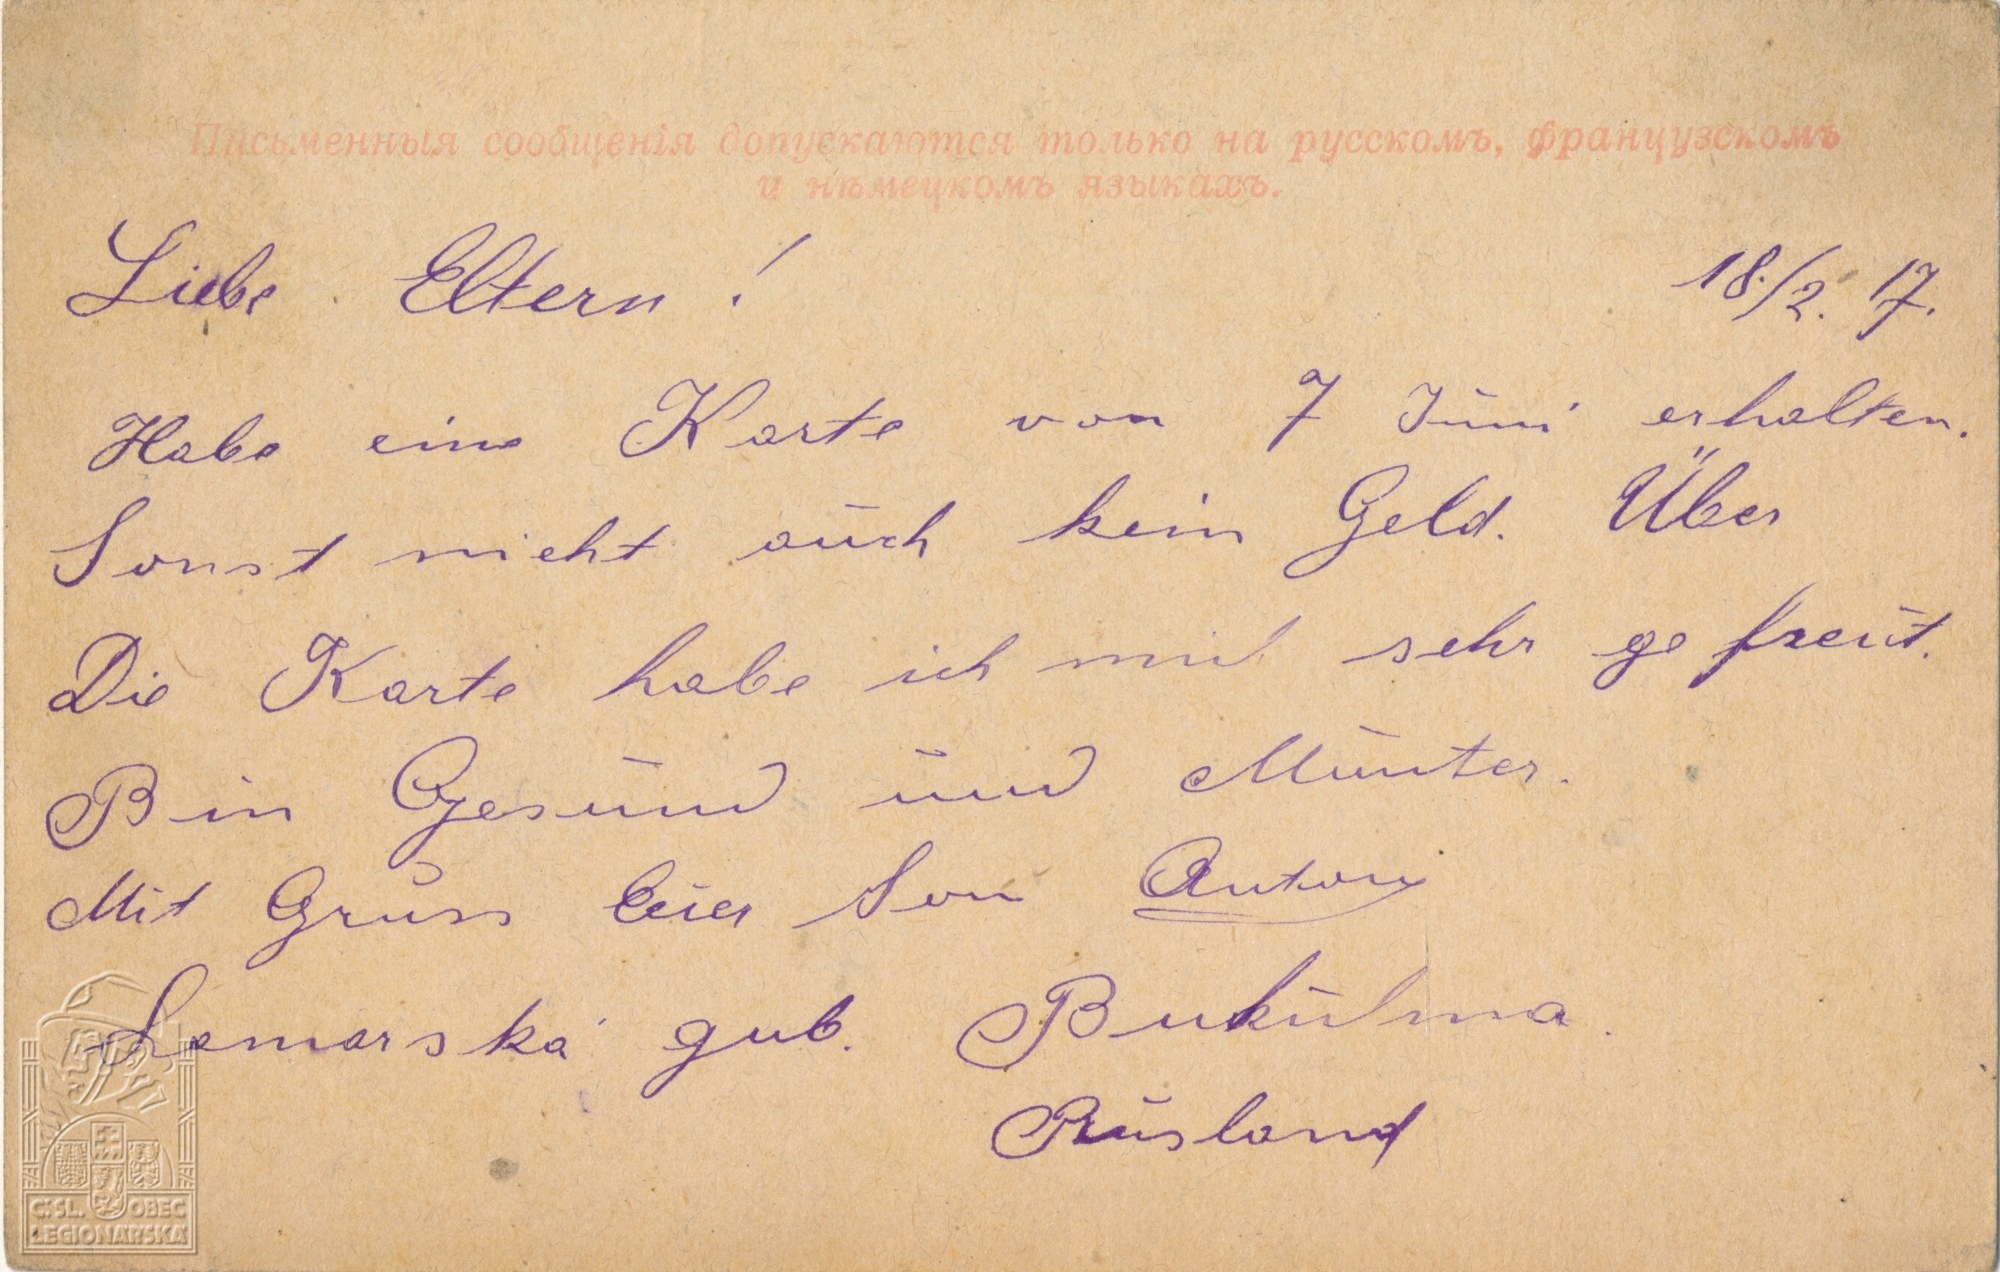 Письменныя сообщенія допускаются только на русскомъ, французскомъ
и нѣмецкомъ языкахъ.
Liebe Eltern! 18./2. 17.
Habe eine Karte von 7 Juni erhalten.
Sonst nicht auch kein Geld. Über
Die Karte habe ich mich sehr gefreut.
Bin Gesund und Munter.
Mit Gruss Euer Son Anton
Samarská gub. Bukulma.
Rusland
ČSL. OBEC
LEGIONÁŘSKÁ